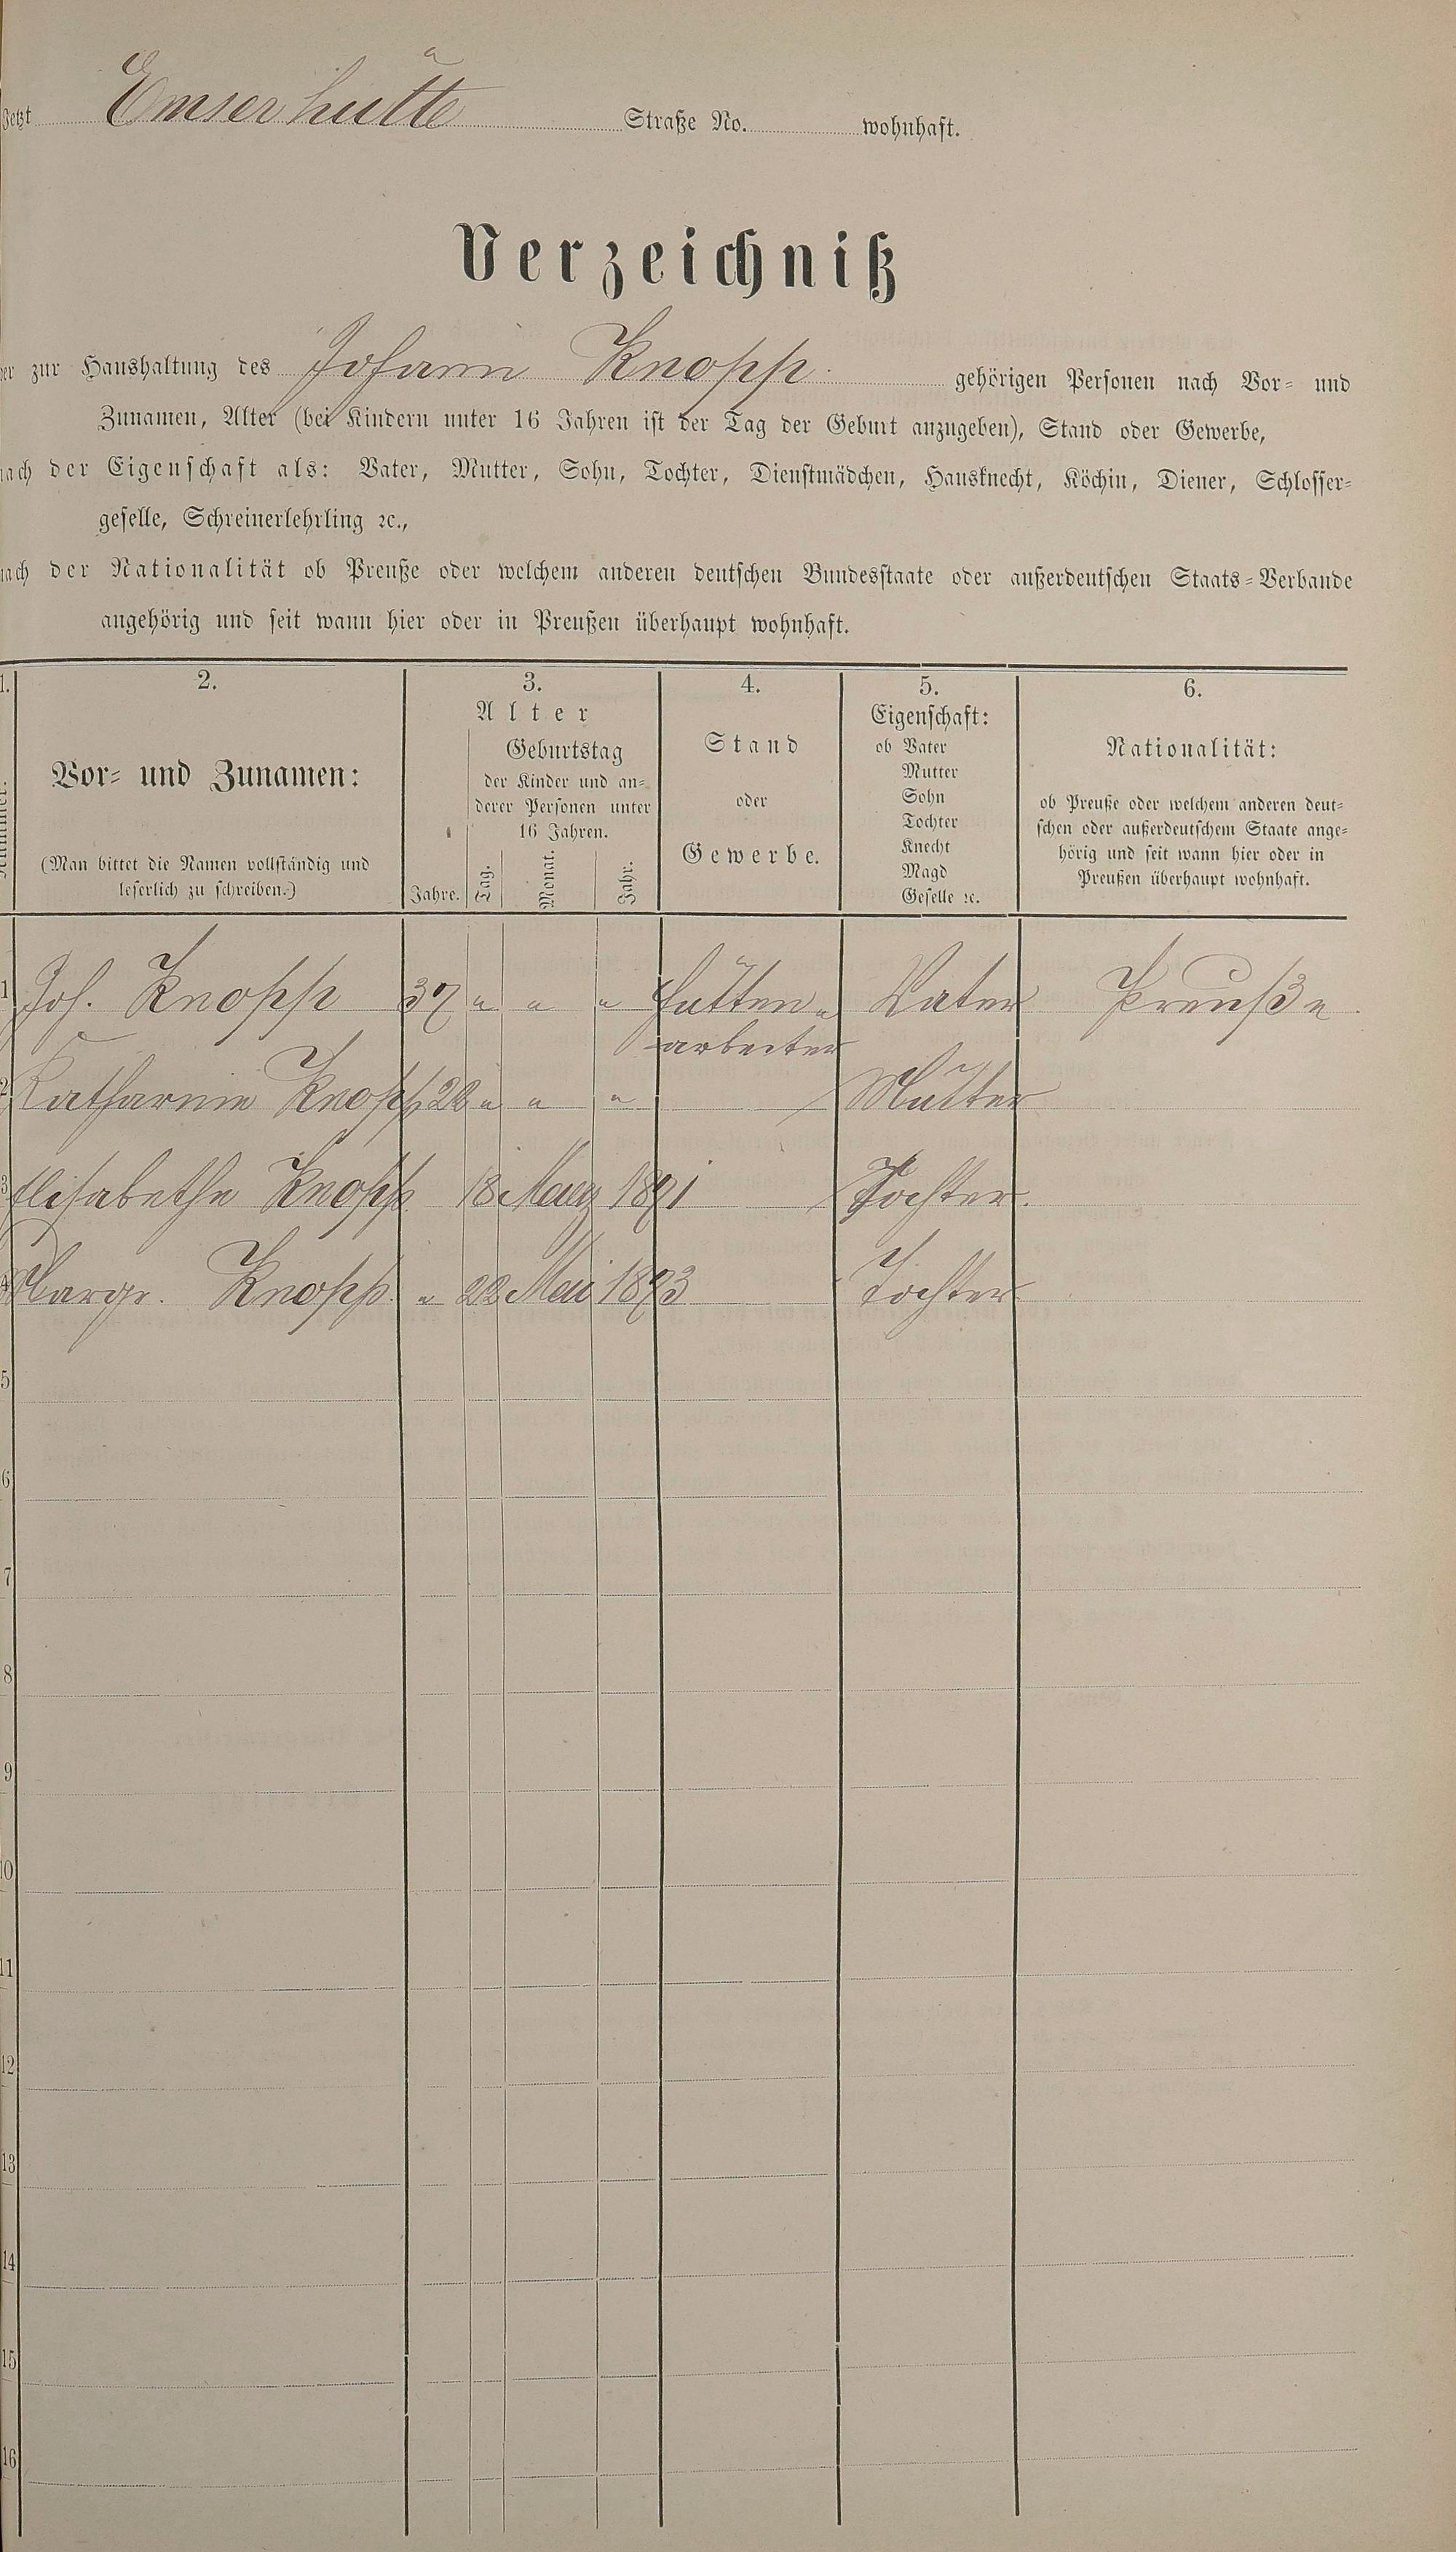 Jetzt Emserhütte Straße No. wohnhaft.
Verzeichniß
der zur Haushaltung des Johann Knopp. gehörigen Personen nach Vor- und
Zunamen, Alter (bei Kindern unter 16 Jahren ist der Tag der Geburt anzugeben), Stand oder Gewerbe,
nach der Eigenschaft als: Vater, Mutter, Sohn, Tochter, Dienstmädchen, Hausknecht, Köchin, Diener, Schlosser-
geselle, Schreinerlehrling ꝛc.,
nach der Nationalität ob Preuße oder welchem anderen deutschen Bundesstaate oder außerdeutschen Staats-Verbande
angehörig und seit wann hier oder in Preußen überhaupt wohnhaft.
1. 2. 3. 4. 5. 6.
Nummer.
Vor- und Zunamen:
(Man bittet die Namen vollständig und
leserlich zu schreiben.)
Alter
Jahre.
Geburtstag
der Kinder und an-
derer Personen unter
16 Jahren.
Tag. Monat. Jahr.
Stand
oder
Gewerbe.
Eigenschaft:
ob Vater
Mutter
Sohn
Tochter
Knecht
Magd
Geselle ꝛc.
Nationalität:
ob Preuße oder welchem anderen deut-
schen oder außerdeutschem Staate ange-
hörig und seit wann hier oder in
Preußen überhaupt wohnhaft.
1 Joh. Knopp 37 " " " Hütten- Vater Preuße.
arbeiter
2 Katharine Knopp " " " Mutter
3 Elisabethe Knopp 18 März 1891 Tochter.
4 Margr. Knopp. " 22 Mai 1893 Tochter.
5
6
7
8
9
10
11
12
13
14
15
16